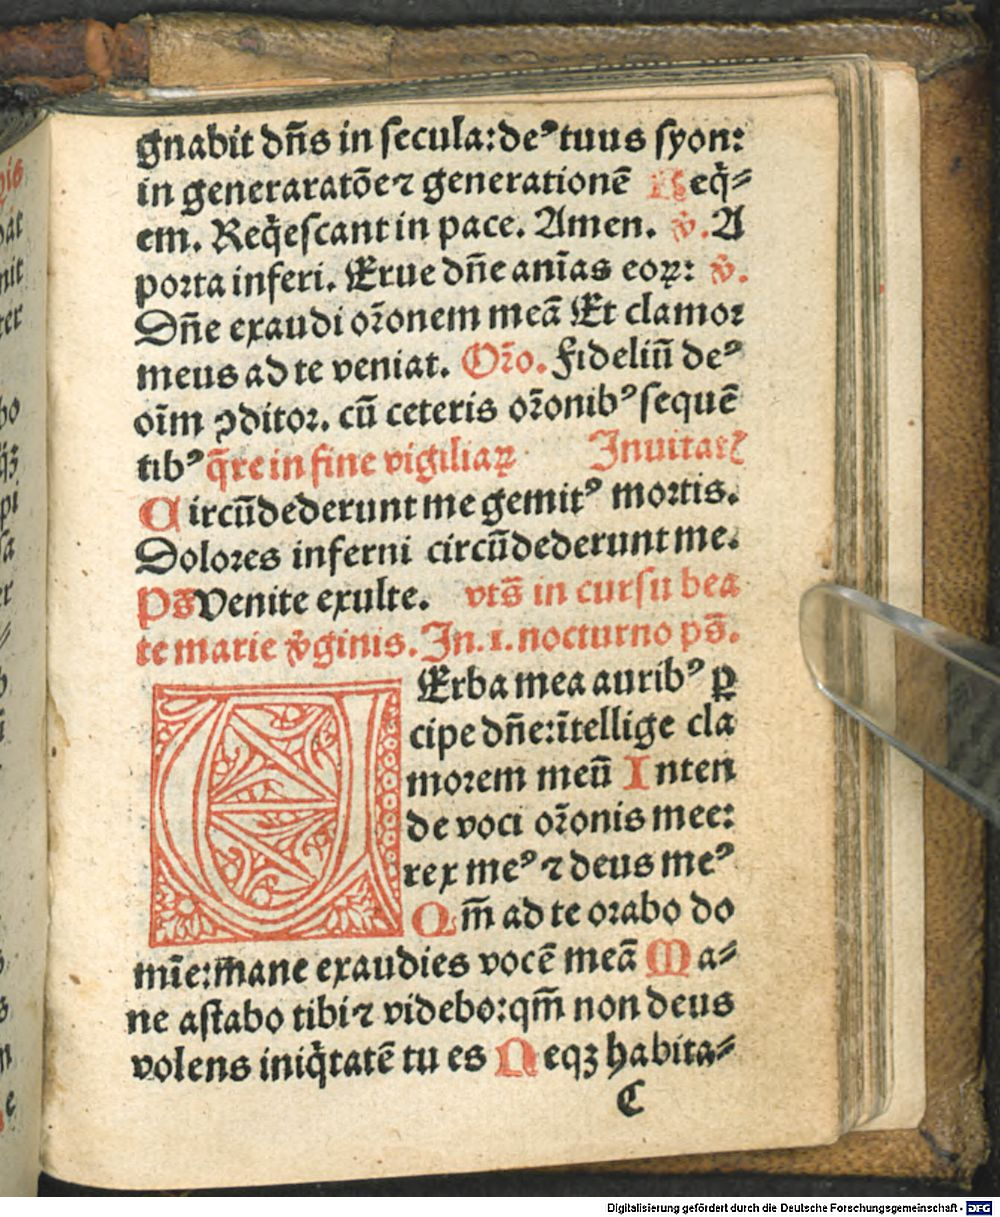 gnabit dn̄s in secula: deꝰ tuus syon:
in generaratōe ⁊ generationē Req̄⸗
em. Req̄escant in pace. Amen. v̄. A
porta inferi. Erue dn̄e anīas eoꝝ: v̄.
Dn̄e exaudi or̄onem meā Et clamor
meus ad te veniat. Or̄o. Fideliū deꝰ
oīm ꝯditor. cū ceteris or̄onibꝰ sequē
tibꝰ q̄re in fine vigiliaꝝ Inuitatꝭ
Circūdederunt me gemitꝰ mortis.
Dolores inferni circūdederunt me.
Ps̄ Venite exulte. vts̄ in cursu bea
te marie v̄ginis. In .1. nocturno ps̄.
VErba mea auribꝰ ꝑ
cipe dn̄e: ītellige cla
morem meū Inten
de voci or̄onis mee:
rex meꝰ ⁊ deus meꝰ
Qm̄ ad te orabo do
mīe: mane exaudies vocē meā Ma⸗
ne astabo tibi ⁊ videbo: qm̄ non deus
volens iniq̄tatē tu es Neqꝫ habita⸗
C
nit
ter
bo
pi
Digitalisierung gefördert durch die Deutsche Forschungsgemeinschaft - DFG